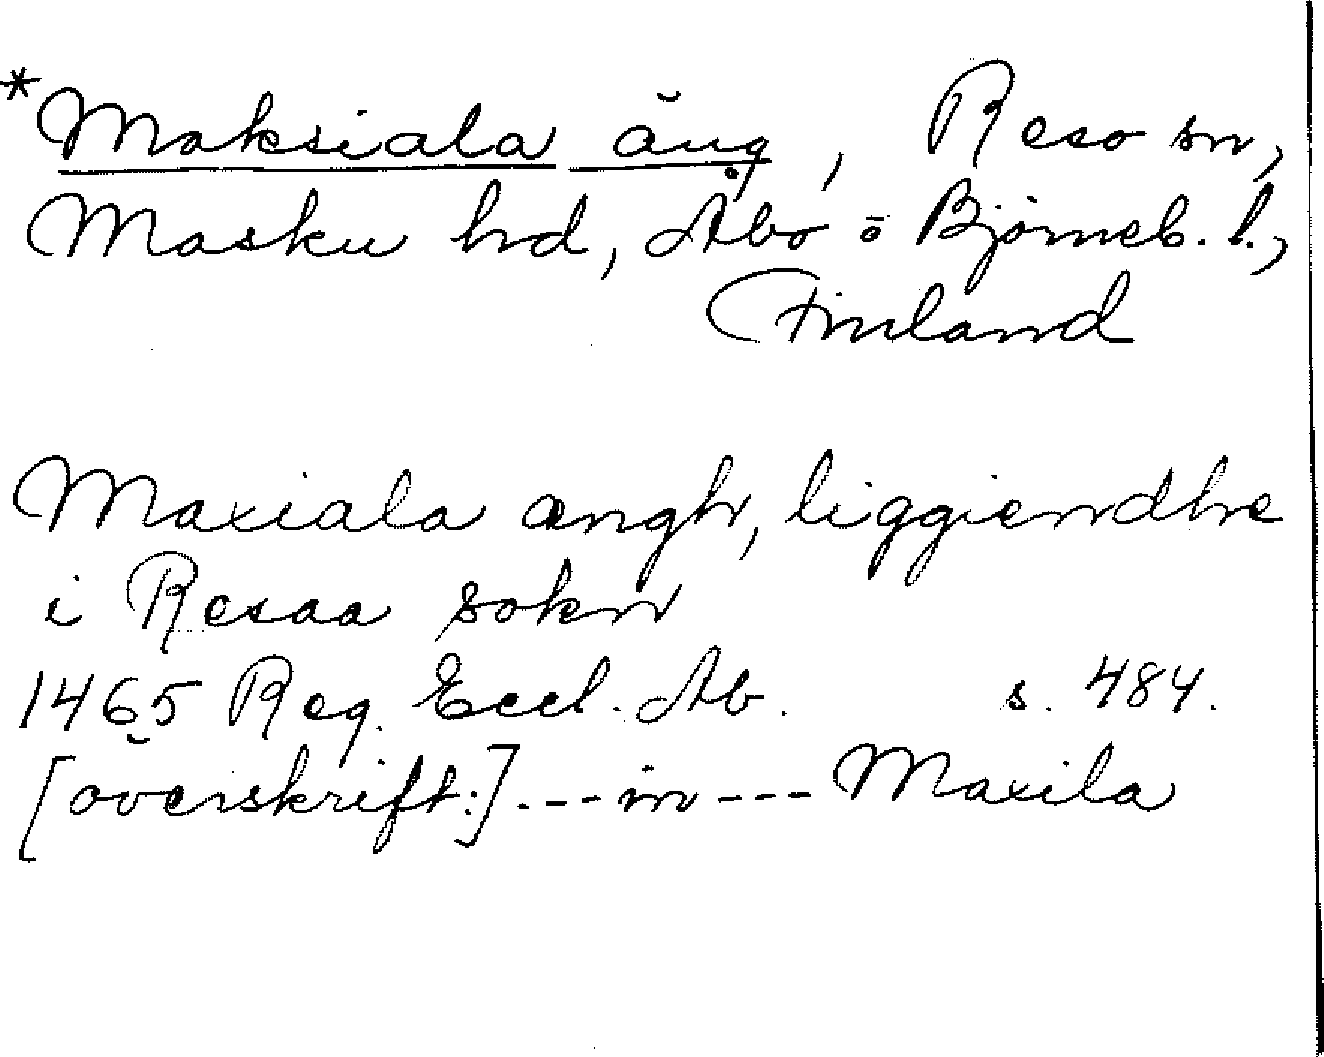 *Maksiala äng, Reso sn,
Masku hd, Åbo o Björneb. l.,
Finland
Maxiala ængh, liggiendhe
i Resaa sokn
1465 Reg. Eccl. Ab. s. 484.
[överskrift:] --- in --- Maxila